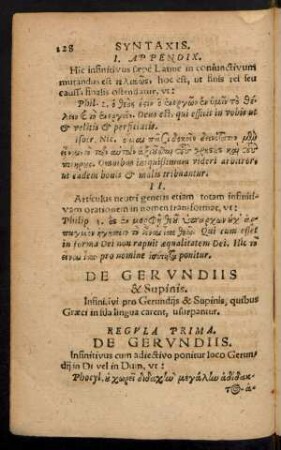 128 SYNTAXIS.
I. APPENDIX.
Hic infinitivus sæpè Latinè in coniunctivum
mutandus est hoc est, ut finis rei seu
caussa finalis ostendatur, ut:
Phil. 2. ὁ θεός ἐστιν ὁ ἐνεργῶν ἐν ὑμῖν τὸ θέ-
λειν καὶ τὸ ἐνεργεῖν. Deus est, qui efficit in vobis ut
& velitis & perficiatis.
Isocr. Nic.
Omnium iniquissimum videri arbitror,
ut eadem bonis & malis tribuantur.
II.
Articulus neutri generis etiam totam infiniti-
vam orationem in nomen transformat, ut:
Philip. 2. ὃς ἐν μορφῇ θεοῦ ὑπάρχων οὐχ ἁρ-
παγμὸν ἡγήσατο τὸ εἶναι ἴσα θεῷ. Qui cum esset
in forma Dei non rapuit æqualitatem Dei. Hic τὸ
εἶναι ἴσα pro nomine ponitur.
DE GERVNDIIS
& Supinis.
Infinitivi pro Gerundijs & Supinis, quibus
Græci in sua lingua carent, usurpantur.
REGVLA PRIMA.
DE GERVNDIIS.
Infinitivus cum adiectivo ponitur loco Gerun-
dij in Di vel in Dum, ut:
Phocyl. ἀ χωρεῖ διδαχὴν μεγάλην ἀδίδακ-
τος ἀ-